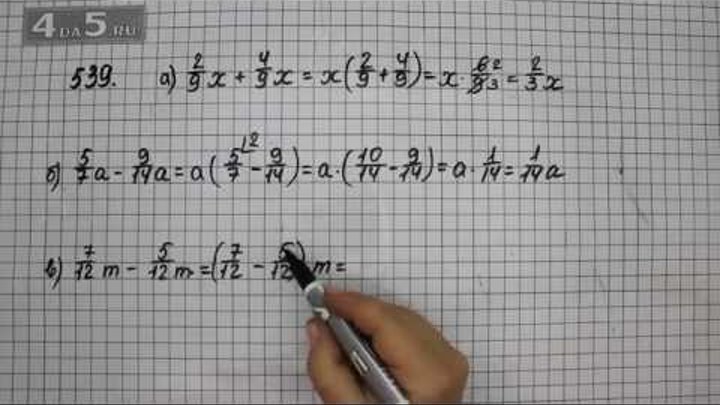 4 DA 5.RU
539. а) 2/9 x + 4/9 x = x(2/9 + 4/9) = x · 6 2/9 3 = 2/3 x
б) 5/7 a - 9/14 a = a(5/7 ⌊2 - 9/14) = a · (10/14 - 9/14) = a · 1/14 = 1/14 a
в) 7/12 m - 5/12 m = (7/12 - 5/12) m =